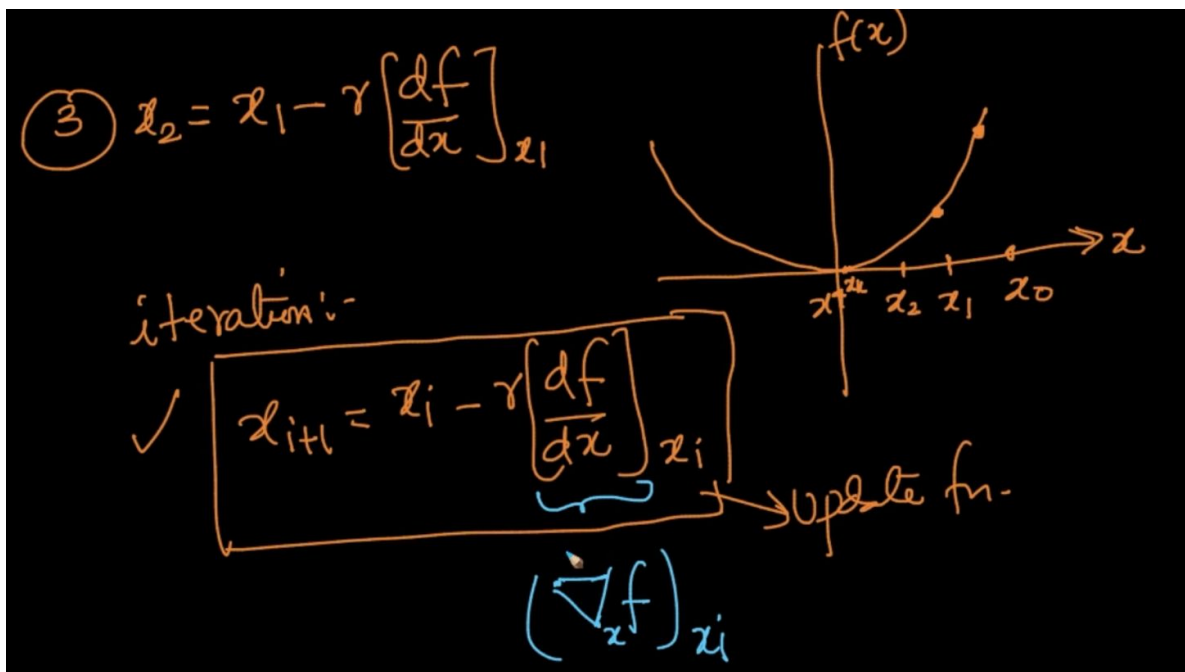 ③ x₂ = x₁ - r [df/dx]ₓ₁
f(x)
x
x* xₖ x₂ x₁ x₀
iteration:-
✓ xᵢ₊₁ = xᵢ - r [df/dx] xᵢ
Update fn.
(∇ₓf)xᵢ